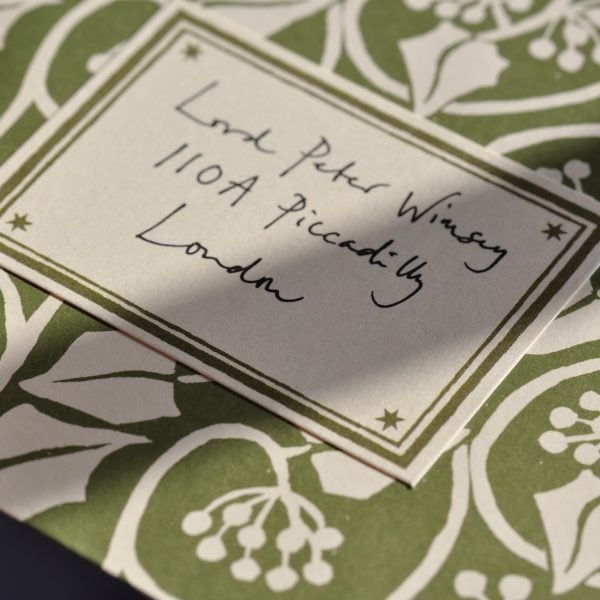 Lord Peter Wimsey
110A Piccadilly
London